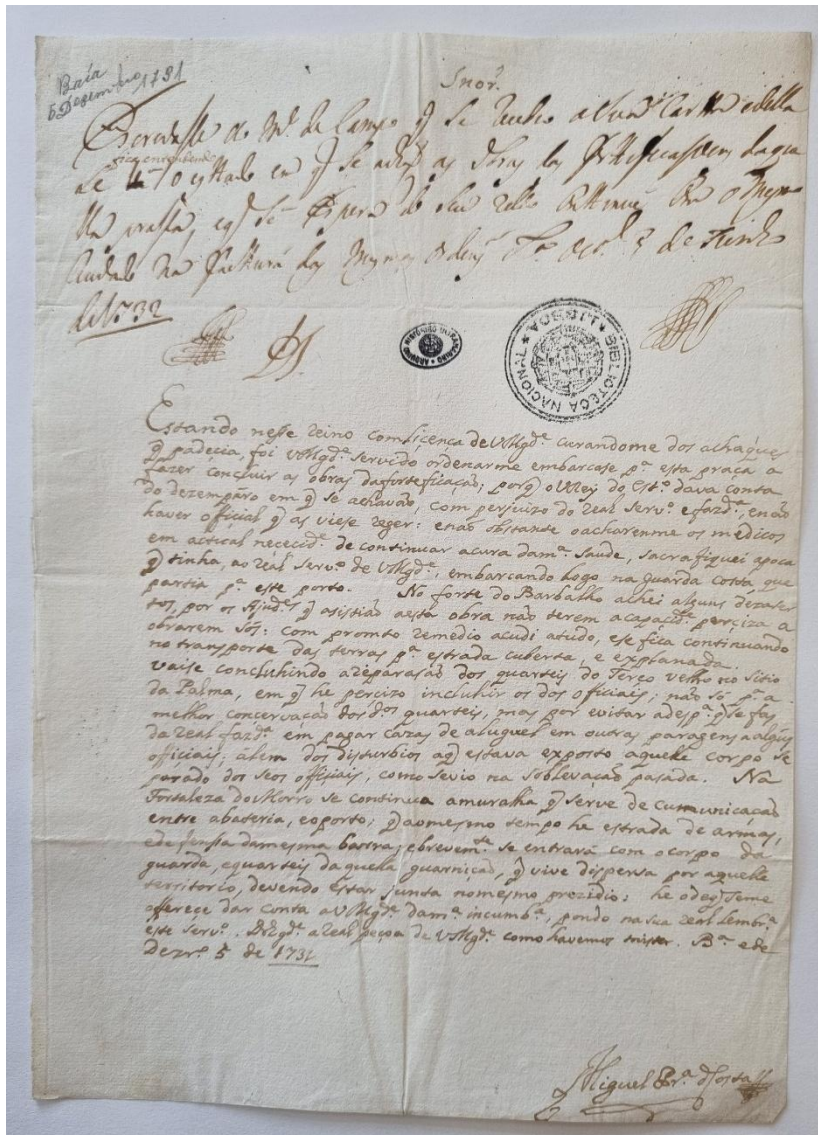 Baía
5 Dezembro 1731
Snor.
Escrevasse ao M.e de Campo q̃ se recebeo a sua Carta e della
fica entendendo
se o estado em q̃ se as obras das fortificasoens daqua
lla prassa, e q̃ se espera do seu zello
Cuidado na factura das mesmas de Junho
de 1732
ARQUIVO HISTÓRICO ULTRAMARINO
BIBLIOTECA NACIONAL * LISBOA *
Estando nesse reino com liçença de VMgd.e curandome dos achaques
q̃ padecia, foi VMgd.e servido ordenarme embarcase p.a esta praça a
fazer concluir as obras da forteficação; porq̃ o VRey do Est.o dava conta
do dezemparo em q̃ se achavão, com perjuizo do real serv.o e fazd.a, e não
haver official q̃ as viese reger: e não obstante o acharenme os médicos
em actical nececid.e de continuar a cura da m.a saude, sacrafiquei a poca
q̃ tinha, ao real serv.o de VMgd.e, embarcando logo na guarda costa que
partia p.a este porto. No forte do Barbalho achei alguns dezaser
tos, por os Ajud.es q̃ asistião a esta obra não terem a capacd.e perçiza a
obrarem sós: com promto remedio acudi a tudo, e se fica continuando
no transporte das terras p.a estrada cuberta, e explanada.
Vaise concluhindo a reparasão dos quarteis do Terço velho no sitio
da Palma, em q̃ he percizo incluhir os dos oficiais; não só p.a a
melhor concervação dos d.os quarteis, mas por evitar a desp.a q̃ se fas,
da real fazd.a em pagar cazas de aluguel em outras paragens a algũs
officiais; álem dos disturbios a q̃ estava exposto aquelle corpo se
parado dos seos officiais, como se vio na soblevação pasada. Na
Fortaleza do Morro se continua a muralha q̃ serve de cumunicação
entre a bateria, e o porto; q̃ ao mesmo tempo he estrada de armas,
e defensa da mesma barra; e brevem.te se entrará com o corpo da
guarda, e quarteis daquella guarnição, q̃ vive dispersa por aquelle
territorio, devendo estar junta no mesmo prezidio: he o de q̃ se me
offerece dar conta a VMgd.e da m.a incumb.a, pondo na sua real lembr.a
este serv.o. D.s gd.e a real peçoa de VMgd.e como havemos mister. B.a e de
Dezr.o 5 de 1731
Miguel Pr.a d Costa